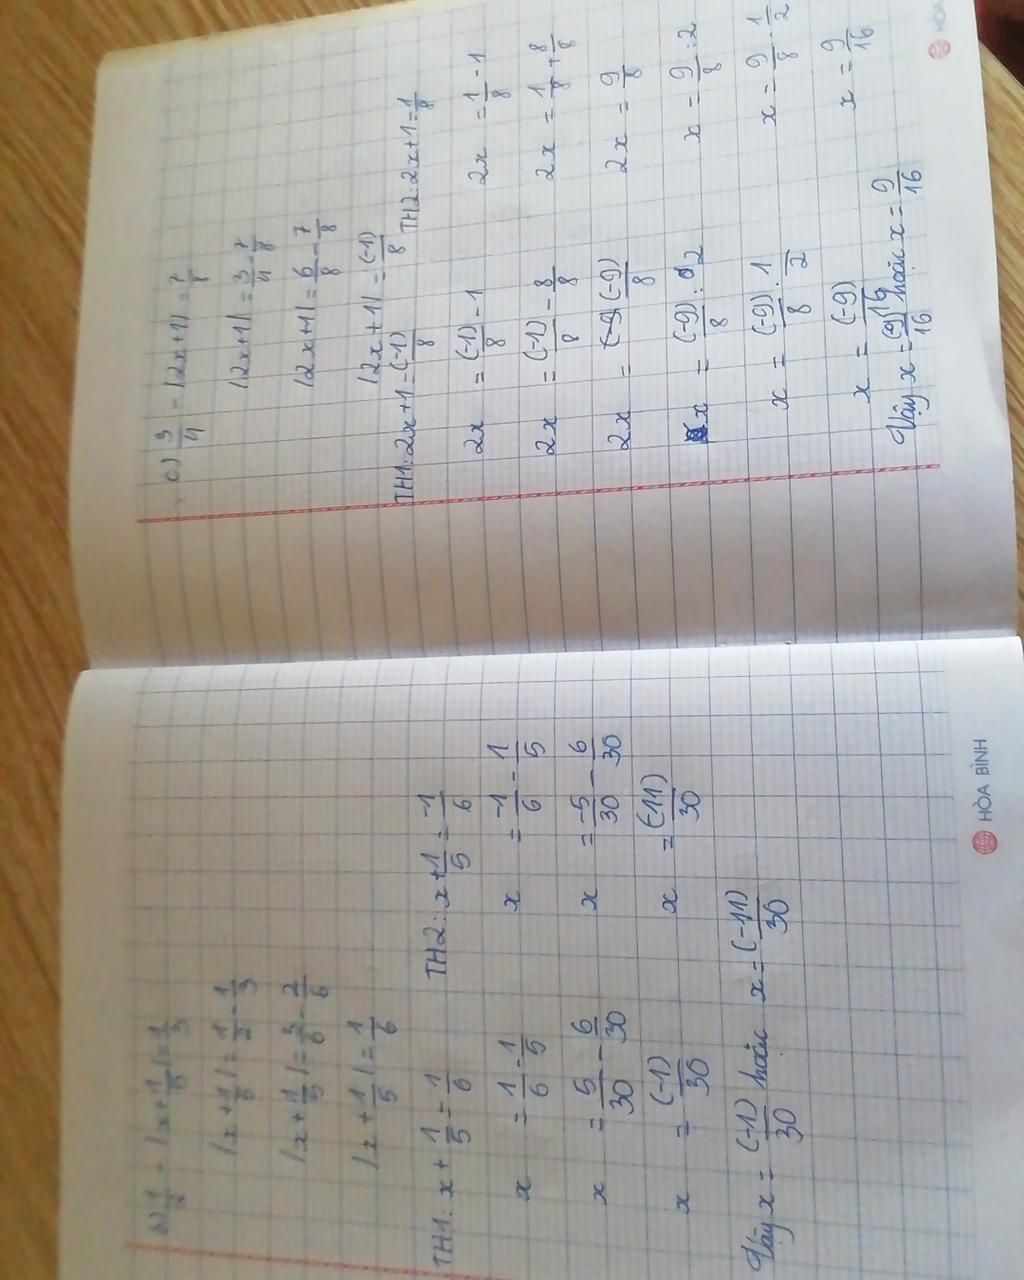 b) 1/2 - |x + 1/5| = 1/3
|x + 1/5| = 1/2 - 1/3
|x + 1/5| = 3/6 - 2/6
|x + 1/5| = 1/6
TH1: x + 1/5 = 1/6
x = 1/6 - 1/5
x = 5/30 - 6/30
x = (-1)/30
TH2: x + 1/5 = -1/6
x = -1/6 - 1/5
x = -5/30 - 6/30
x = (-11)/30
Vậy x = (-1)/30 hoặc x = (-11)/30
HÒA BÌNH
c) 3/4 - |2x+1| = 7/8
|2x+1| = 3/4 - 7/8
|2x+1| = 6/8 - 7/8
|2x+1| = (-1)/8
TH1: 2x+1 = (-1)/8
2x = (-1)/8 - 1
2x = (-1)/8 - 8/8
2x = (-9)/8
x = (-9)/8 : 2
x = (-9)/8 . 1/2
x = (-9)/16
TH2: 2x+1 = 1/8
2x = 1/8 - 1
2x = 1/8 + 8/8
2x = 9/8
x = 9/8 : 2
x = 9/8 . 1/2
x = 9/16
Vậy x = (-9)/16 hoặc x = 9/16
HÒA